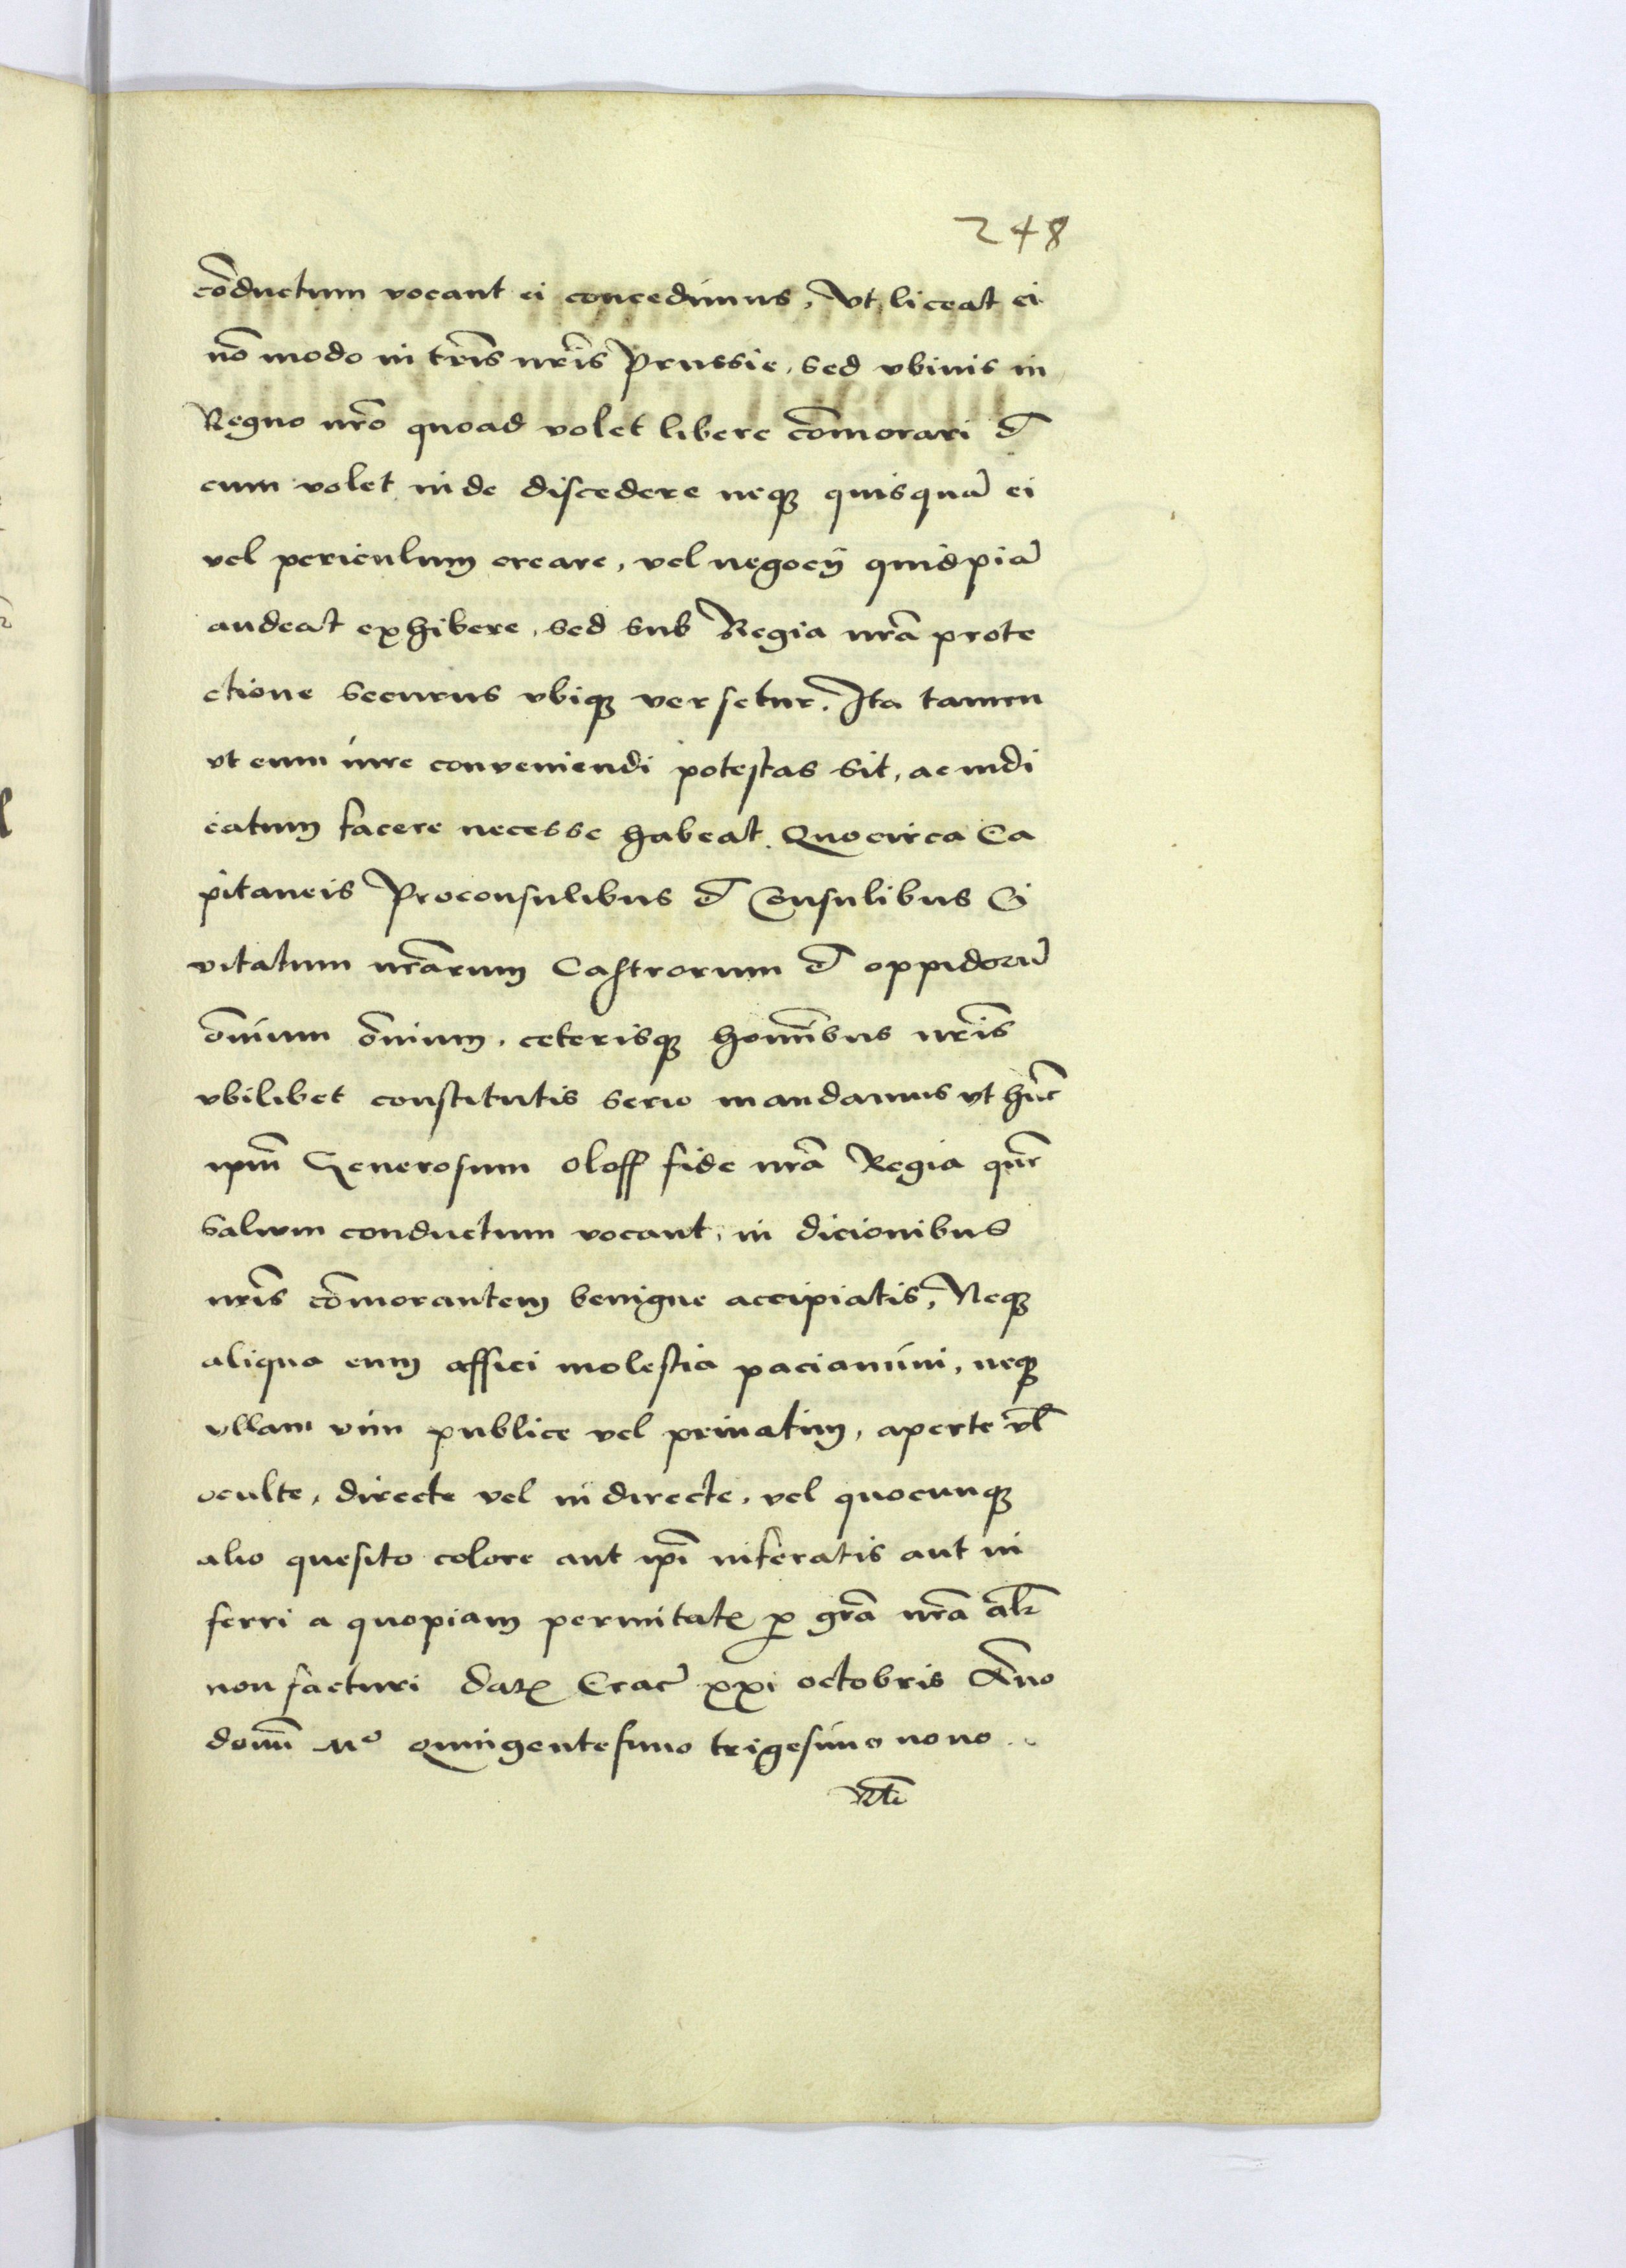 248
cõductum vocant ei concedimus, vt liceat ei
nõ modo in tr̃is nr̃is Prussie, sed vbiuis in
Regno nr̃o quoad volet libere cõmorari et
cum volet inde discedere neqꝫ quisquã ei
vel periculum creare, vel negocij quidpiã
audeat exhibere, sed sub Regia nr̃a prote
ctione securus vbiqꝫ versetur. Ita tamen
vt eum iure conveniendi potestas sit, ac iudi
catum facere necesse habeat. Quocirca Ca
pitaneis Proconsulibus et Consulibus Ci
vitatum nr̃arum Castrorum et oppidorũ
õmium õmium, ceterisqꝫ homĩbus nr̃is
vbilibet constitutis serio mandamus vt hũc
ipm̃ Generosum Oloff fide nr̃a Regia quẽ
saluum conductum vocant, in dicionibus
nr̃is cõmorantem benigne accipiatis, Neqꝫ
aliqua eum affici molestia paciamini, neqꝫ
vllam vim publice vel priuatim, aperte vl̃
oculte, directe vel indirecte, vel quocunqꝫ
alio quesito colore aut ip̃i inferatis aut in
ferri a quopiam permitatꝭ ꝓ gr̃a nr̃a alr̃
non facturi Datꝭ Crac̃ xxi octobris Anno
domĩ Mº Quingentesimo trigesimo nono